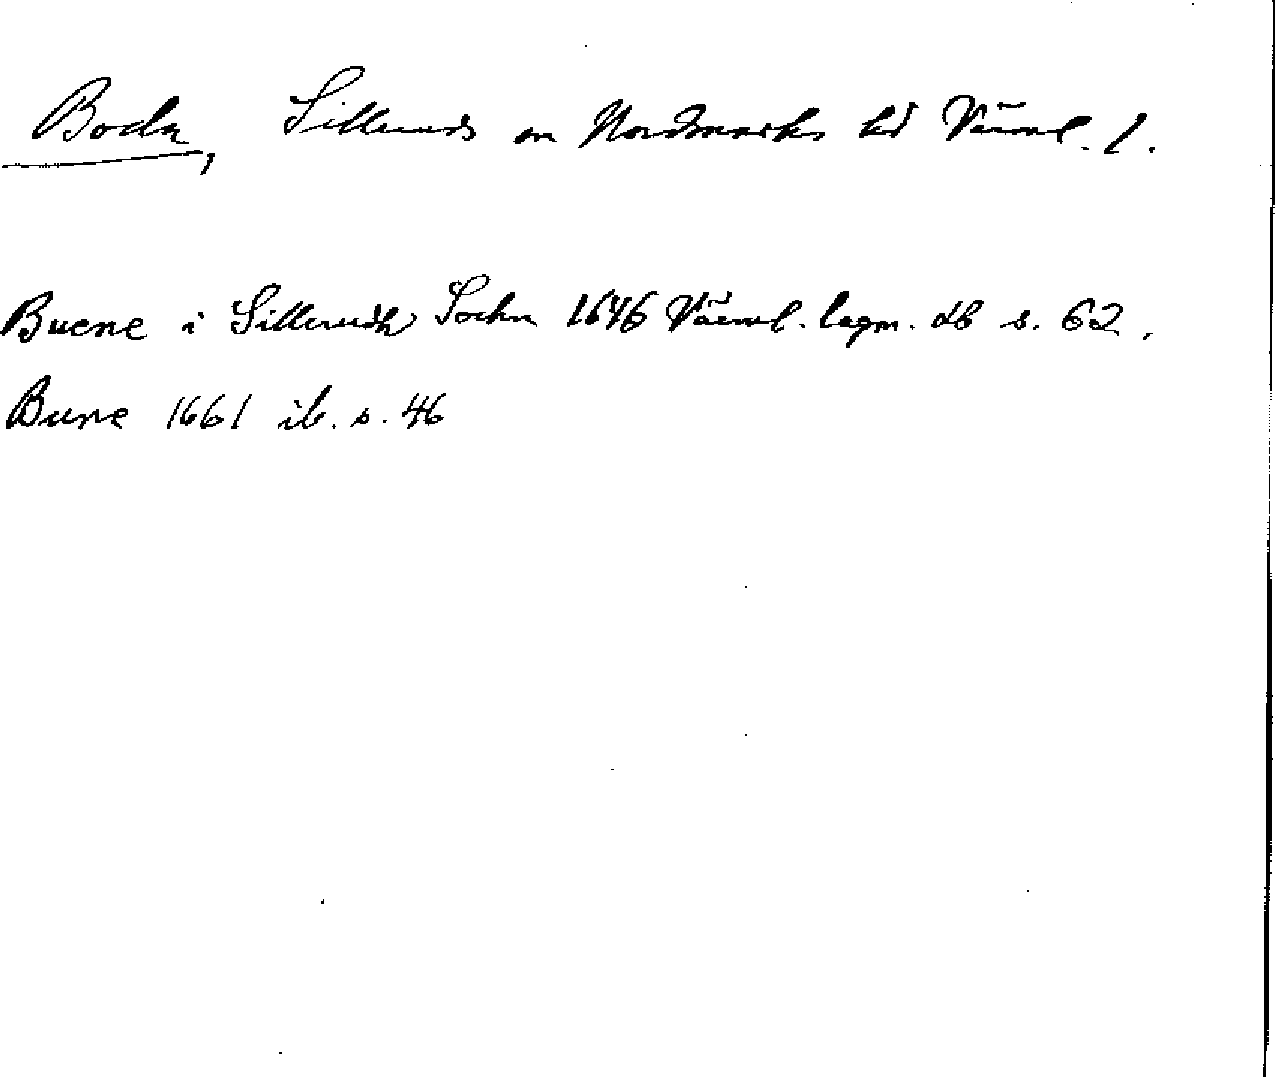 Boda, Silleruds sn Nordmarks hd Värml. l.
Buene i Sillerudh Sochn 1646 Värml. lagm. db s. 62.
Bune 1661 ib. s. 46